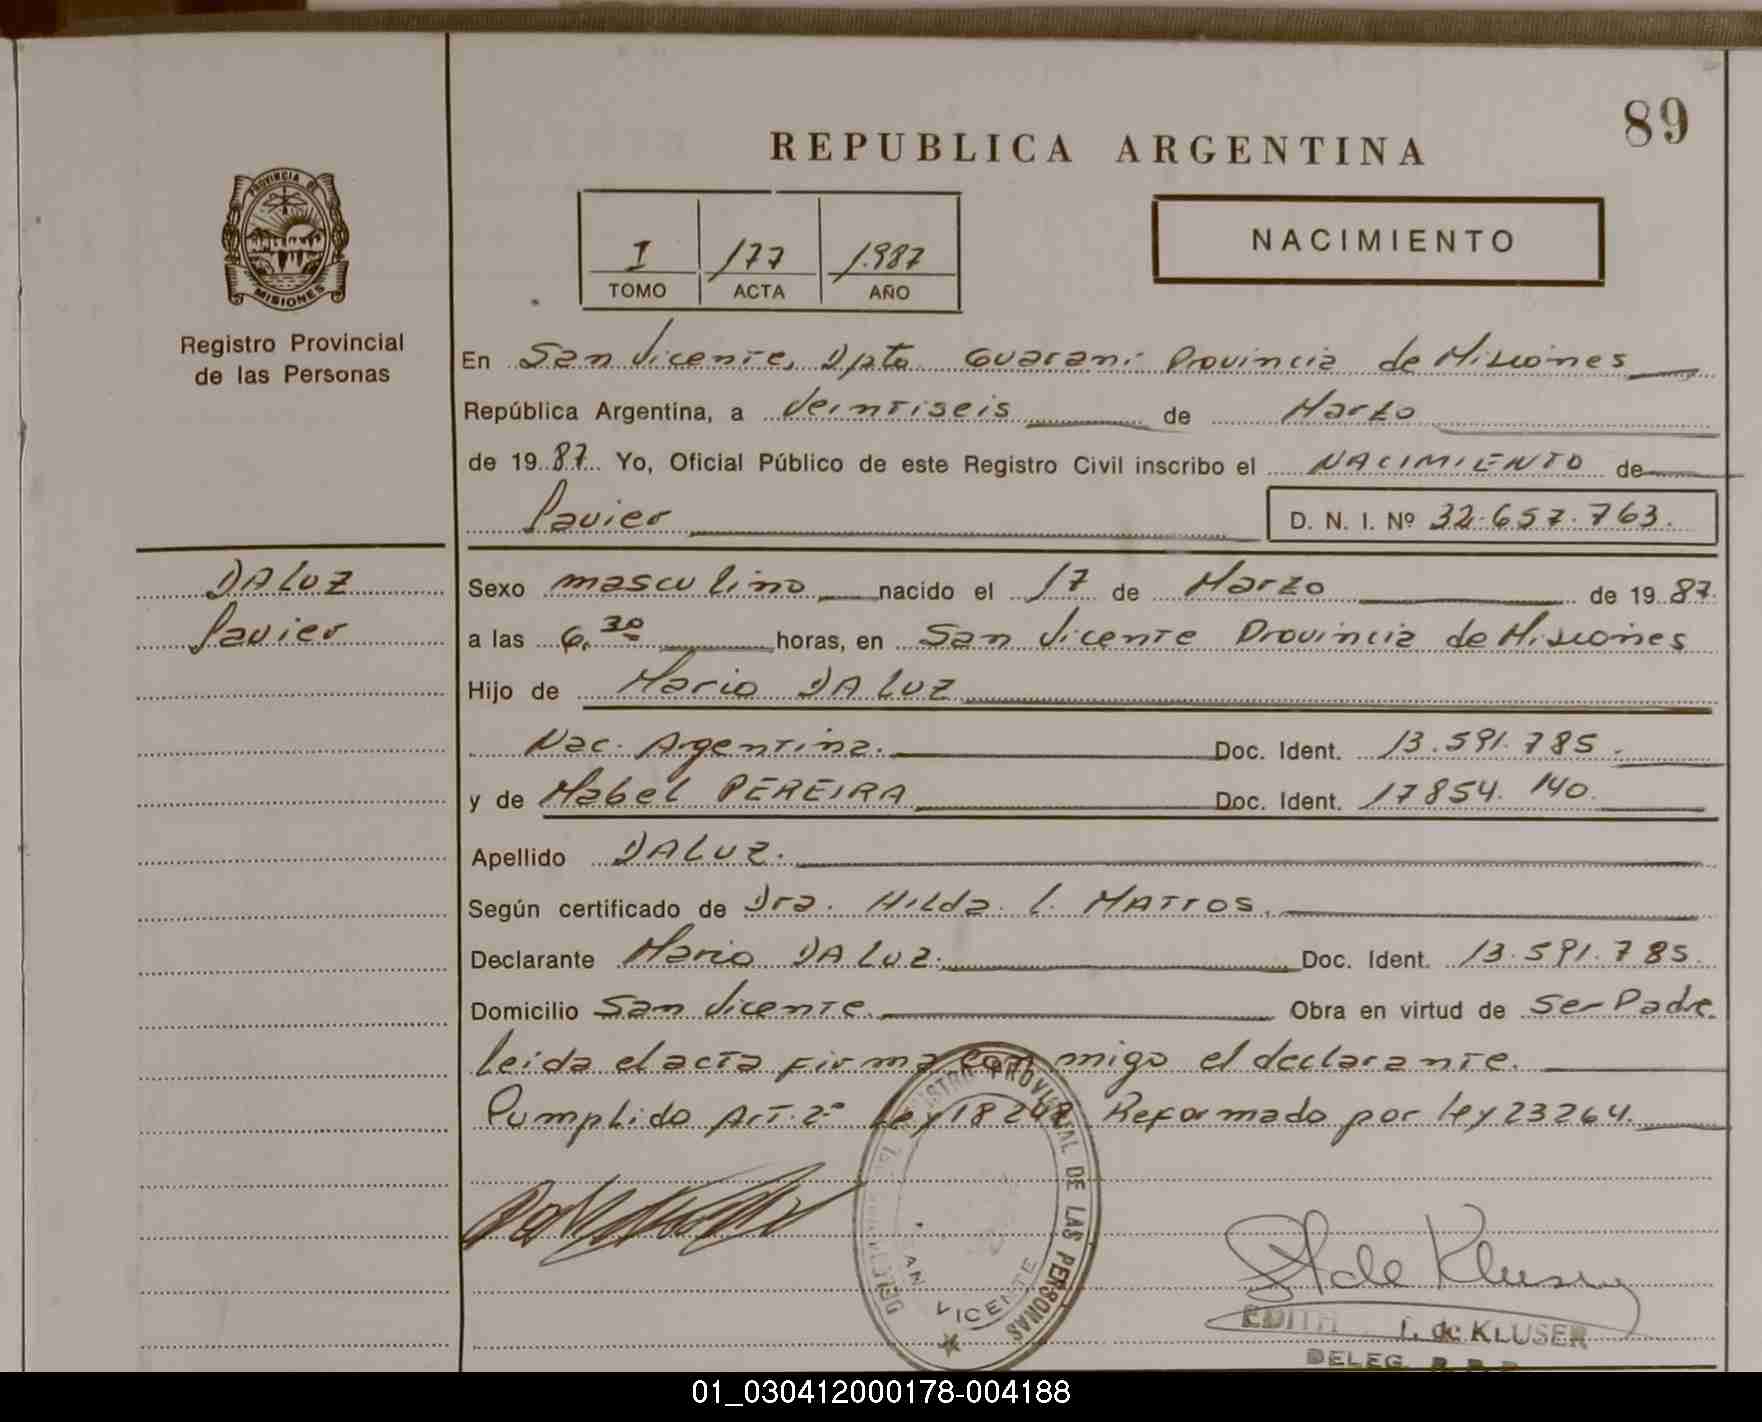 89
REPUBLICA ARGENTINA
PROVINCIA DE
MISIONES
Registro Provincial
de las Personas
I 177 1.987
TOMO ACTA AÑO
NACIMIENTO
En San Vicente, Dpto Guarani Provincia de Misiones
República Argentina, a Veintiseis de Marzo
de 1987 Yo, Oficial Público de este Registro Civil inscribo el NACIMIENTO de
Javier D. N. I. Nº 32.657.763.
DA LUZ
Javier
Sexo masculino nacido el 17 de Marzo de 1987.
a las 6.30 horas, en San Vicente Provincia de Misiones
Hijo de Mario DA LUZ
Nac. Argentina. Doc. Ident. 13.591.785.
y de Mabel PEREIRA Doc. Ident. 17854.140.
Apellido DA LUZ.
Según certificado de Dra. Hilda L. MATTOS.
Declarante Mario DA LUZ. Doc. Ident. 13.591.785.
Domicilio San Vicente. Obra en virtud de Ser Padre.
Leida el acta firma con migo el declarante.
Cumplido Art. 2º Ley 18248 Reformado por Ley 23264.
REGISTRO PROVINCIAL DE LAS PERSONAS
SAN VICENTE
de Kluser
EDITH I. de KLUSER
DELEG. R.P.P.
01_030412000178-004188